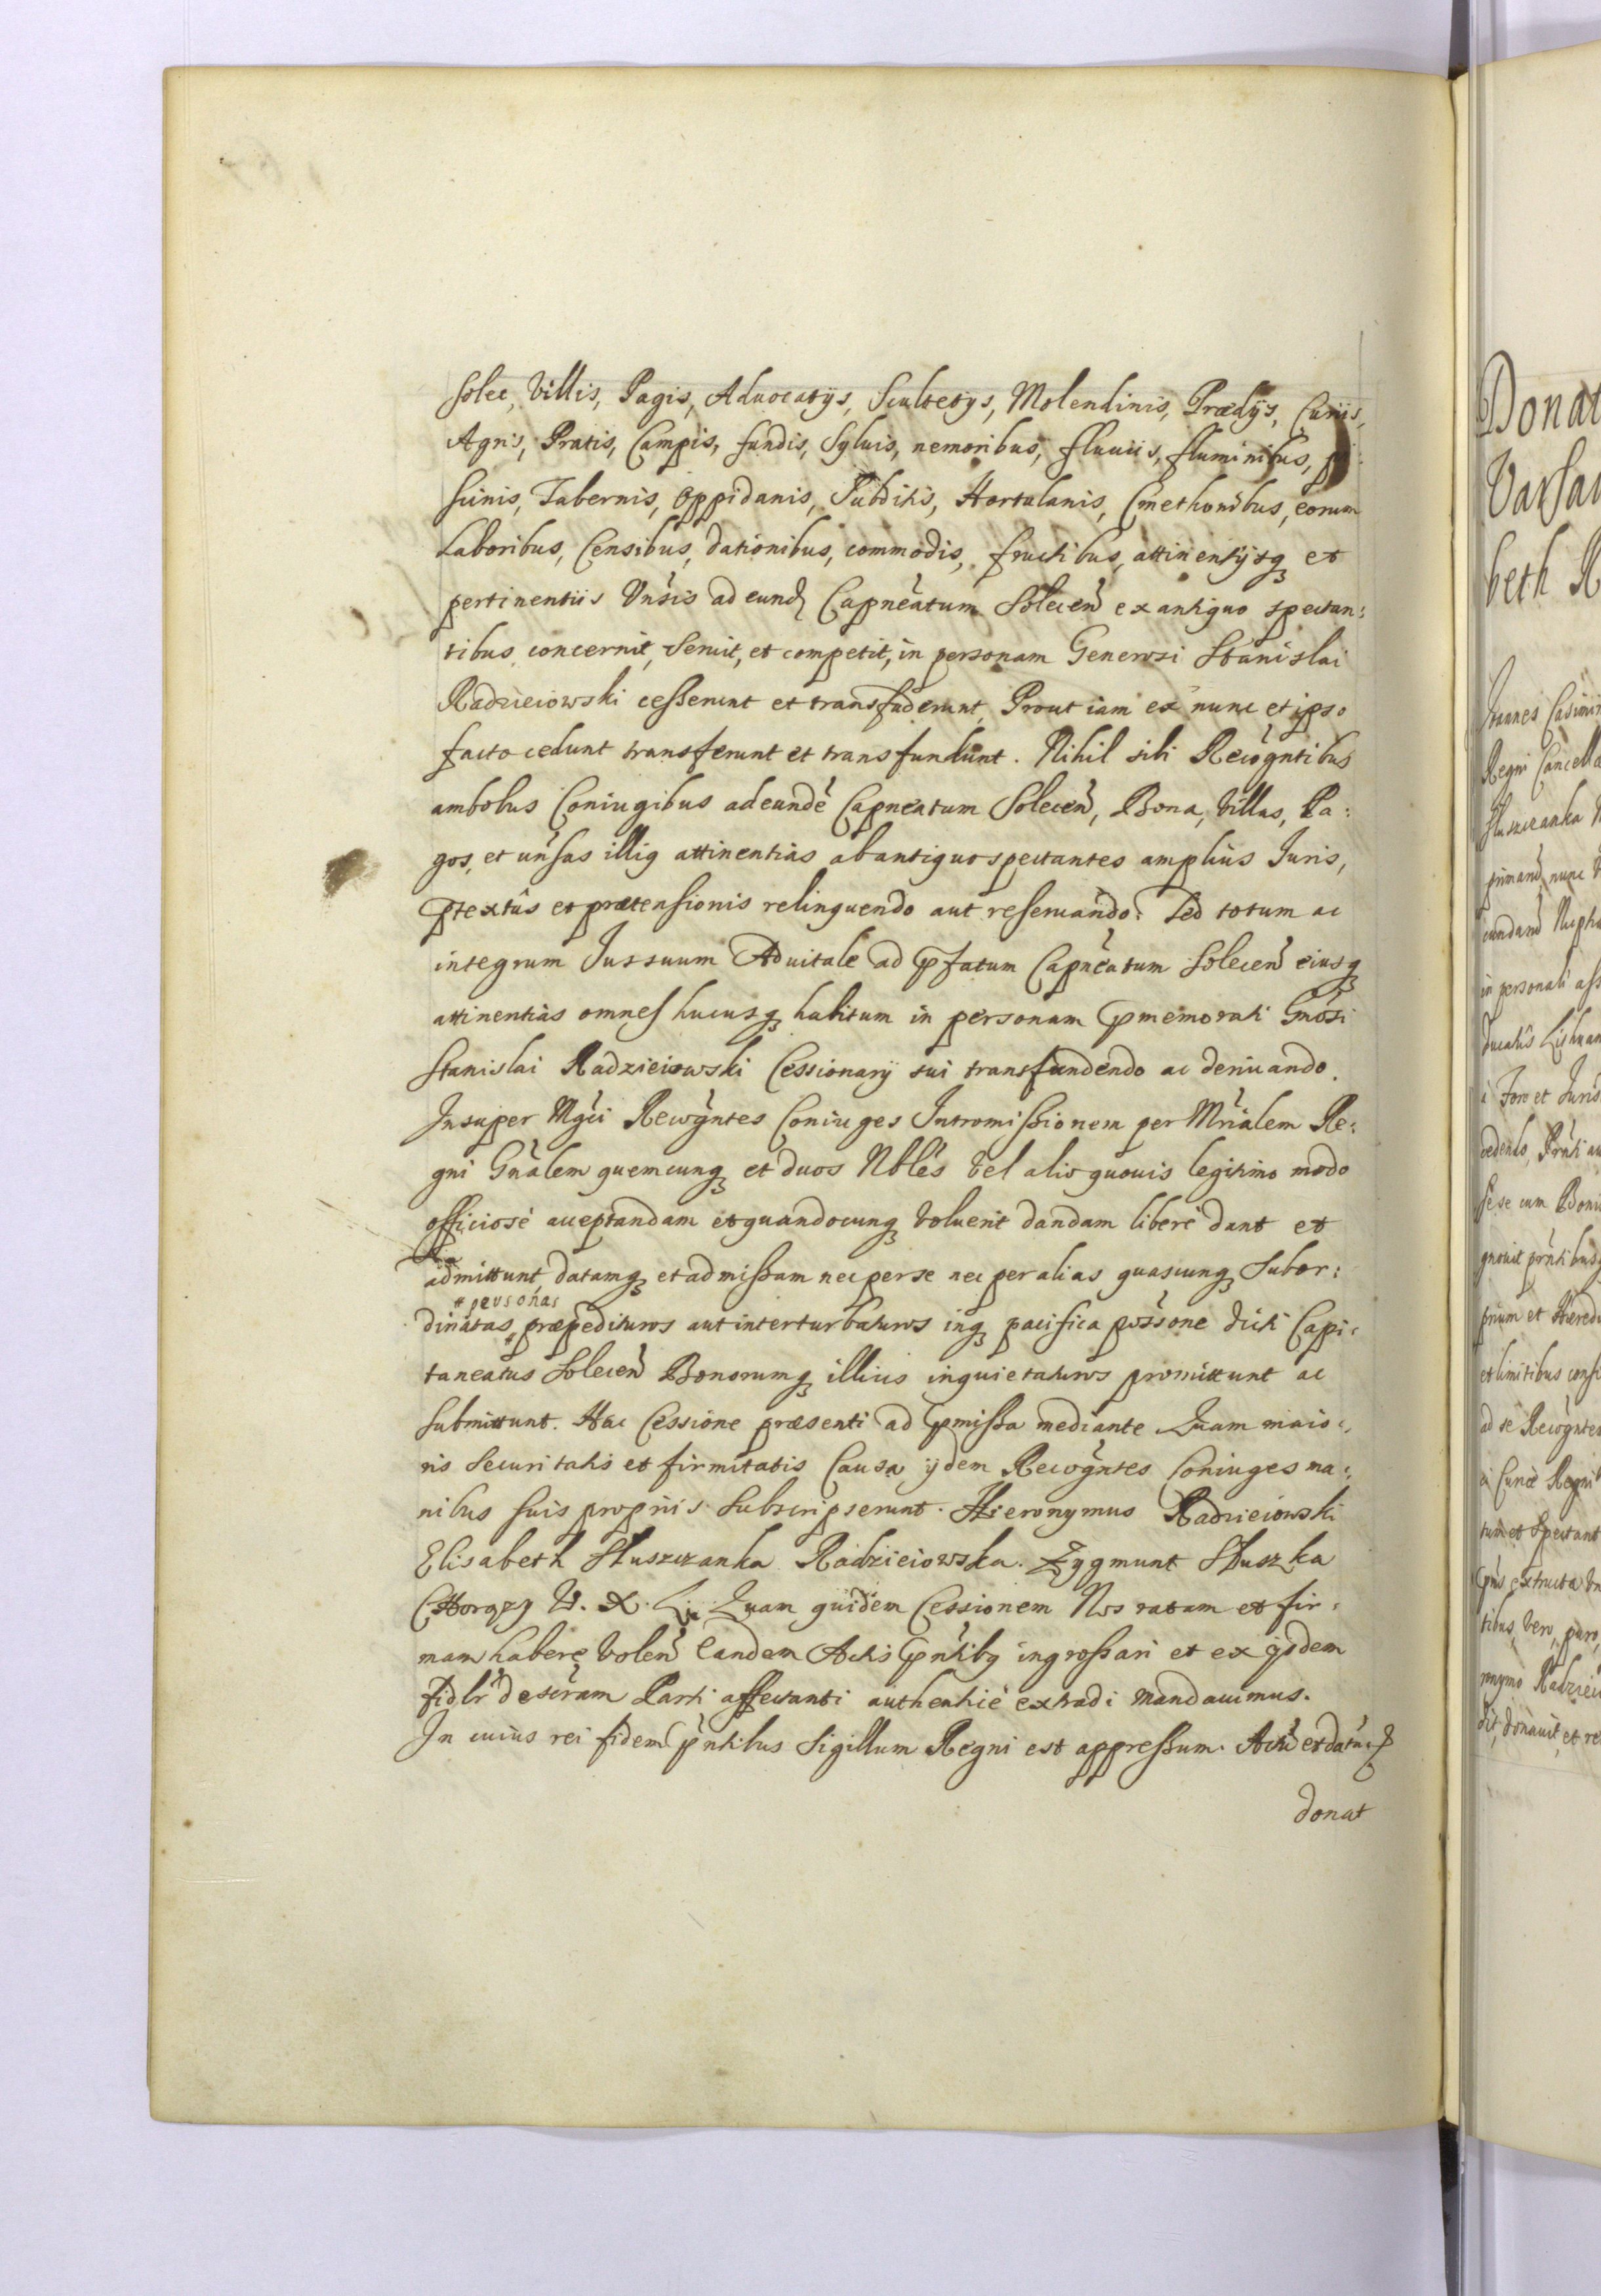 Solec, Villis, Pagis, Aduocatijs, Scultetijs, Molendinis, Prædijs, Curiis,
Agris, Pratis, Campis, fundis, Syluis, nemoribus, fluuiis, fluminibus, pi-
scinis, Tabernis, Oppidanis, Subditis, Hortulanis, Cmethonibus, eorum
Laboribus, Censibus, dationibus, commodis, fructibus, attinentijsq et
pertinentiis Vnsis ad eund Capneatum Solecen ex antiquo spectan:
tibus concernit, Seruit, et competit, in personam Generosi Stanislai
Radzieiowski cesserunt et transfuderunt, Prout iam ex nunc et ipso
facto cedunt transferunt et transfundunt. Nihil sibi Recogntibus
ambobus Coniugibus ad eunde Capneatum Solecen, Bona, Villas, Pa:
gos, et unsas illiq attinentias ab antiquo spectantes amplius Iuris,
ptextus et prætensionis relinquendo aut reseruando. Sed totum ac
integrum Jus suum Aduitale ad pfatum Capneatum Solecen eiusq
attinentias omnes hucusq habitum in personam pmemorati Gnosi
Stanislai Radzieiowski Cessionarij sui transfundendo ac deriuando.
Insuper Mgci Recogntes Coniuges Intromissionem per Mrialem Re:
gni Gnalem quemcunq et duos Nbles vel alio quouis legitimo modo
officiose acceptandam et quandocunq voluerit dandam libere dant et
admittunt, datamq et admissam nec per se nec per alias quascunq Subor:
# personas
dinatas # præpedituros aut interturbaturos inq pacifica possone dicti Capi:
taneatus Solecen Bonorumq illius inquietaturos promittunt ac
submittunt. Hac Cessione præsenti ad pmissa mediante Quam maio:
ris Securitatis et firmitatis Causa ijdem Recogntes Coniuges ma:
nibus suis propriis Subscripserunt. Hieronymus Radzieiowski
Elisabeth Słuszczanka Radzieiowska. Zygmunt Słuszka
Chorązy W. X. L. Quam quidem Cessionem Nos ratam et fir:
mam habere Volen Eandem Actis pntibq ingrossari et ex ijsdem
fidlr descram Parti affectanti authentice extradi mandauimus.
In cuius rei fidem pntibus Sigillum Regni est appressum. Actu et datu
donat
Donat
Varsau
beth R
Joannes Casimir
Regni Cancella
Słuszczanka
primand nunc
in personali ass
à Foro et Juris